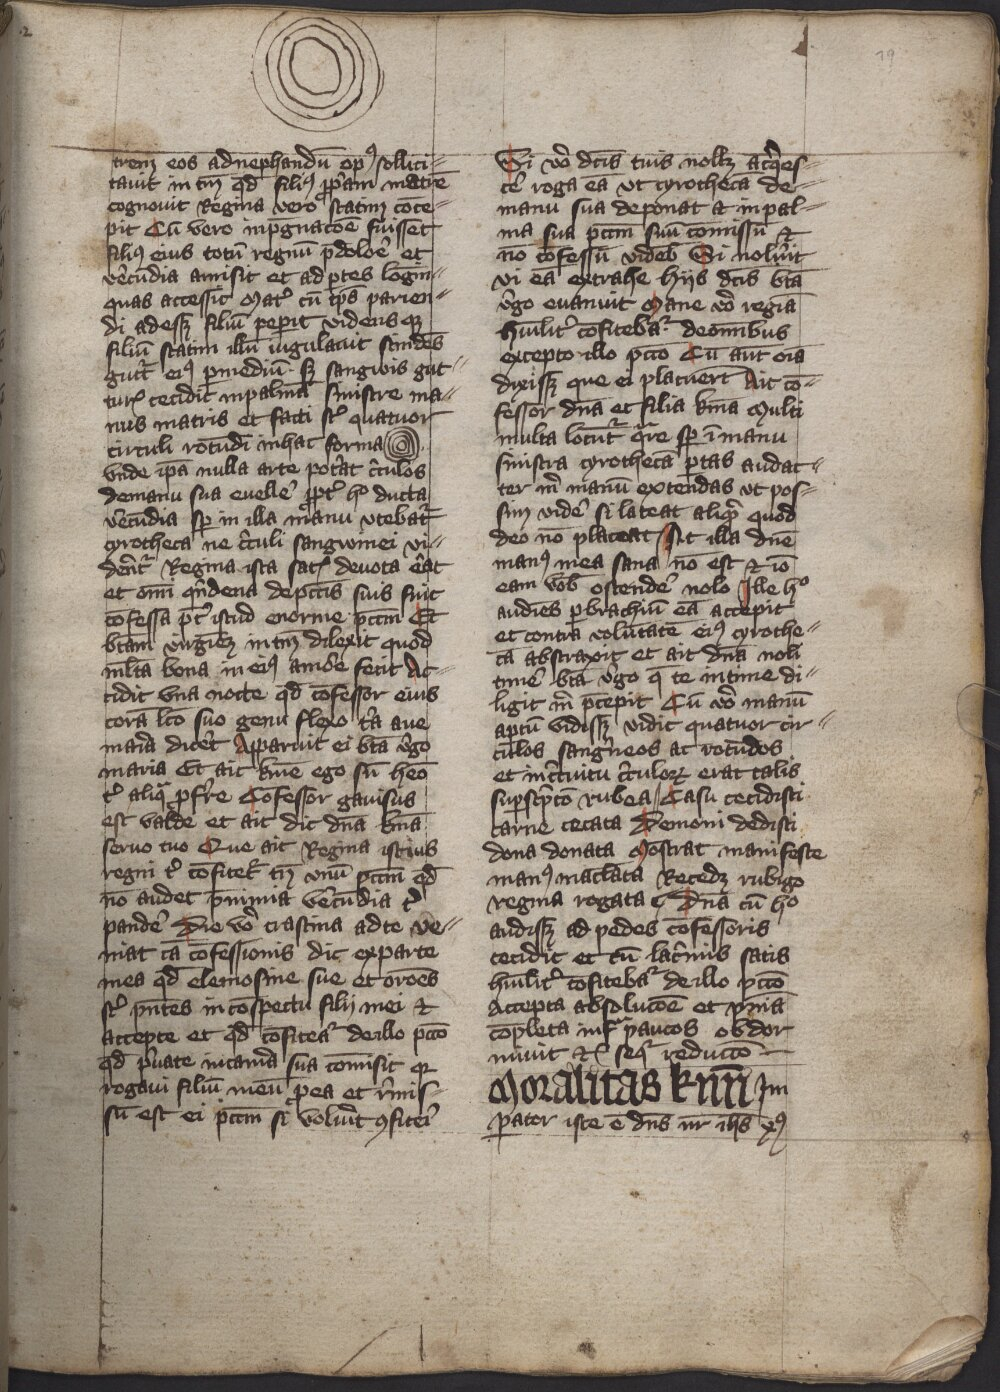 19
trem eos ad nephandū op⁹ sollici-
tauit in tm̄ qd̄ fili⁹ ꝓpͥam matrē
cognouit Regina vero statim cōce-
pit Cū vero inpͤgnacōe fuisset
fili⁹ eius totū regnū pͤ dolōē et
vͤcūdia amisit et ad ptes login-
quas accessit Matͬ cū tp̄s parien-
di adessꝫ filiū pepit videns qꝫ
filiū statim illū iugulauit scindēs
guttͬ ei⁹ ꝑ mediū sꝫ sangwis gut-
turꝭ cecidit in palmā sinistre ma-
nus matris et facti st̄ quatuor
circuli rotūdi in hac forma
vnde ip̄a nulla arte potͤat cͥculos
de manu sua euellē ꝓptͤ hͦ ducta
vͤcūdia sꝑ in illa manu vtebatͬ
cyrotheca ne cͥculi sangwinei vi-
dēntͬ Regina ista satꝭ deuota ēat
et omī qͥndena de pctīs suis fuit
cōfessa pͤtͬ istud enorme pctm̄ Et
btām virginē in tm̄ dilexit quod
ml̄ta bona in ei⁹ amōe fecit Ac-
cidit vna nocte qd̄ cōfessor eius
corā lcō suo genu flexo tͥa aue
maria dicēt Apparuit ei btā vͥgo
maria Et ait km̄e ego sū
tͬ aliqͣ ꝓfͤre Cōfessor gauisus
est valde et ait dic dn̄a km̄a
seruo tuo Que ait Regina istius
regni tͬ cōfitetͬ tm̄ vnū pctm̄ qd̄
nō audet pͤ nimia vͤcūdia tͬ
pandē Die vͦ crastina ad te ve-
niat cā cōfessionis dic ex parte
mea qd̄ elemosine sue et orōēs
st̄ pn̄tes in cōspectu filij mei et
accepte et qd̄ cōfiteatͬ de illo pctō
qd̄ pͥuate in camͣa sua cōmisit qꝫ
rogaui filiū meū ꝓ ea et rͤmis-
sū est ei pctm̄ si voluͥt ꝯfiteri
Si vͦ dctīs tuis nollꝫ acqͥes-
cē roga eā vt cyrothecā de
manu sua deponat et in pal-
ma sua pctm̄ suū cōmissū et
nō cōfessū videb Si nolūit
vi eā extrahe Hijs dctīs btā
vͥgo euanuit Mane vͦ regīa
hūilitͬ cōfitebatͬ de omībus
excepto illo pctō Cū aūt oīa
dixissꝫ que ei placuerūt Ait cō-
fessor dn̄a et filia km̄a Multi
multa locūtͬ qͣre sꝑ ī manu
sinistra cyrothecā portas audac-
ter mͥ manū extendas vt pos-
sim vidē si lateat aliqͥd quod
deo nō placeat Ait illa dn̄e
man⁹ mea sana nō est et iō
eam vob ostendē nolo Ille hͦ
audiēs ꝑ brachiū eā accepit
et contra volūtatē ei⁹ cyrothe-
cā abstraxit et ait dn̄a noli
timē btā vͥgo q̄ te intime di-
ligit mͥ pͤcepit Cū vͦ manū
aꝑtū vidissꝫ vidit quatuor cir-
culos sangͥneos ac rotūdos
et in cͥcuitu cͥculoꝝ erat talis
suꝑscpͥtō rubea Casu cecidisti
carne cecata Demoni dedisti
dona donata Mostrat manifeste
man⁹ maclata Recedꝫ rubigo
regina rogata Dn̄a cū hͦ
audissꝫ ad pedes cōfessoris
cecidit et cū lacͥmis satis
hūilitͬ cōfitebatͬ de illo pctō
Accepta absolucōe et pn̄ia
cōpleta infͣ paucos obdor
miuit etc̄ seqͬ reductō
Moralitas km̄i Im
perator iste ē dn̄s nr̄ ih̄s xp⁹